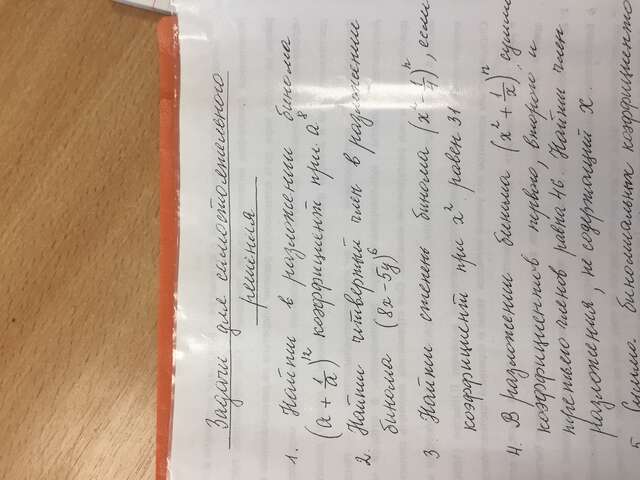 Задачи для самостоятельного
решения
1. Найти в разложении бинома
(a + 1/a)^12 коэффициент при a^8
2. Найти четвертый член в разложении
бинома (8x - 5y)^6
3. Найти степень бинома (x^2 - 1/4)^n, если
коэффициент при x^2 равен 31
4. В разложении бинома (x^2 + 1/x)^n сумма
коэффициентов первого, второго и
третьего членов равна 46. Найти член
разложения, не содержащий x.
5. Сумма биномиальных коэффициенто